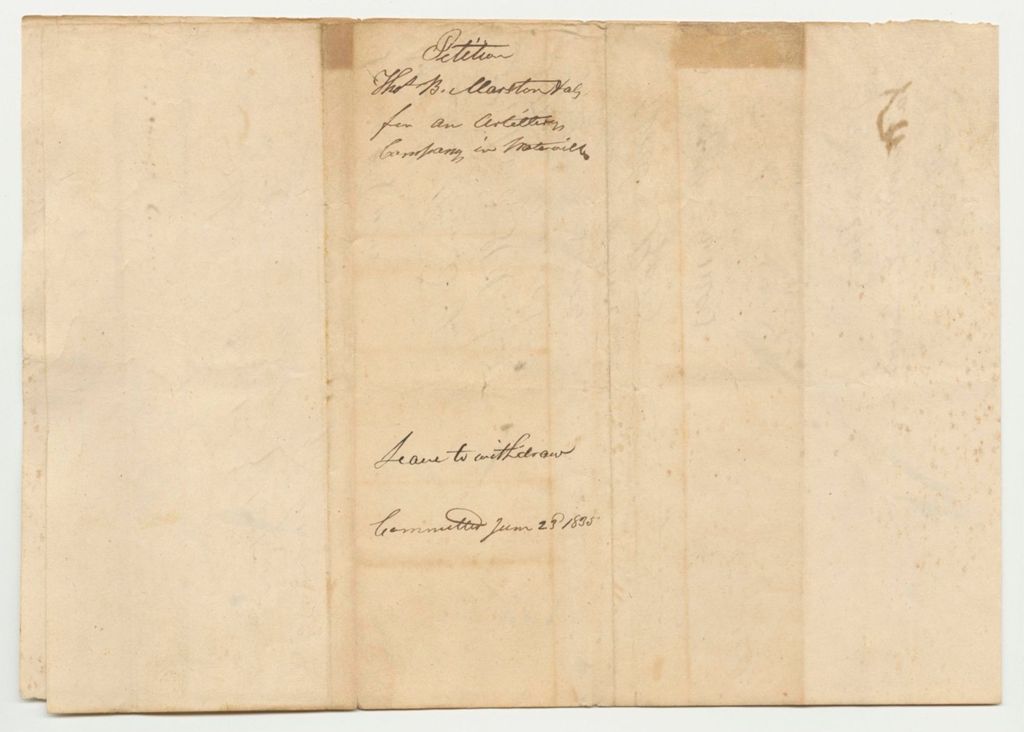 Petition
Thos B. Marston & als
for an Artillery
Company in Waterville
Leave to withdraw
Committed June 23d 1835